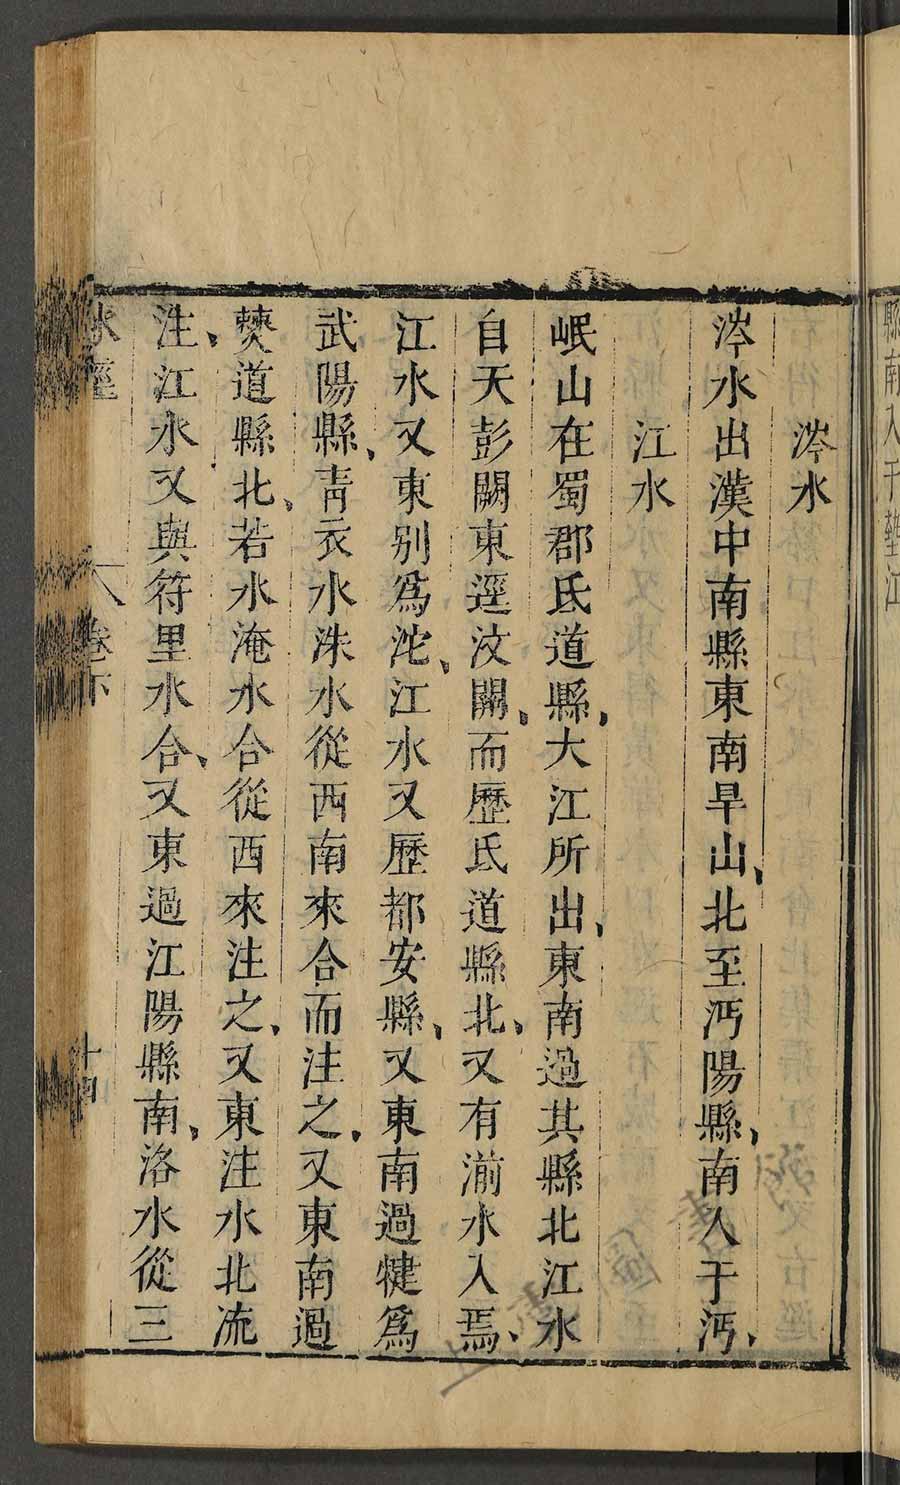 縣南入于墊江
涔水
涔水出漢中南縣東南旱山、北至沔陽縣、南入于沔、
江水
岷山在蜀郡氐道縣、大江所出、東南過其縣北江水
自天彭闕東逕汶關、而歷氐道縣北、又有湔水入焉、
江水又東别為沱、江水又歷都安縣、又東南過犍為
武陽縣、青衣水洙水從西南來合而注之、又東南過
僰道縣北、若水淹水合從西來注之、又東注水北流
注、江水又與符里水合、又東過江陽縣南、洛水從三
水經
卷下
十四